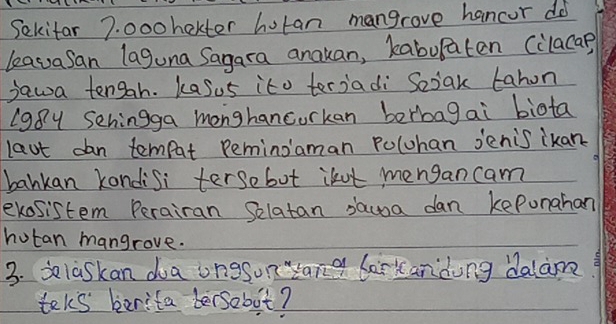 Sekitar 7.000 hekter hutan mangrove hancur di
kawasan laguna Sagara anakan, kabupaten Cilacap,
Jawa tengah. kasus itu terjadi Sejak tahun
1984 Sehingga menghancurkan berbagai biota
laut dan tempat Peminjaman Puluhan jenis ikan
bahkan kondisi tersebut ikut mengancam
ekosistem Perairan Selatan jawa dan kepunahan
hutan mangrove.
3. Jelaskan dua ungsur yang terkandung dalam
teks berita tersebut?